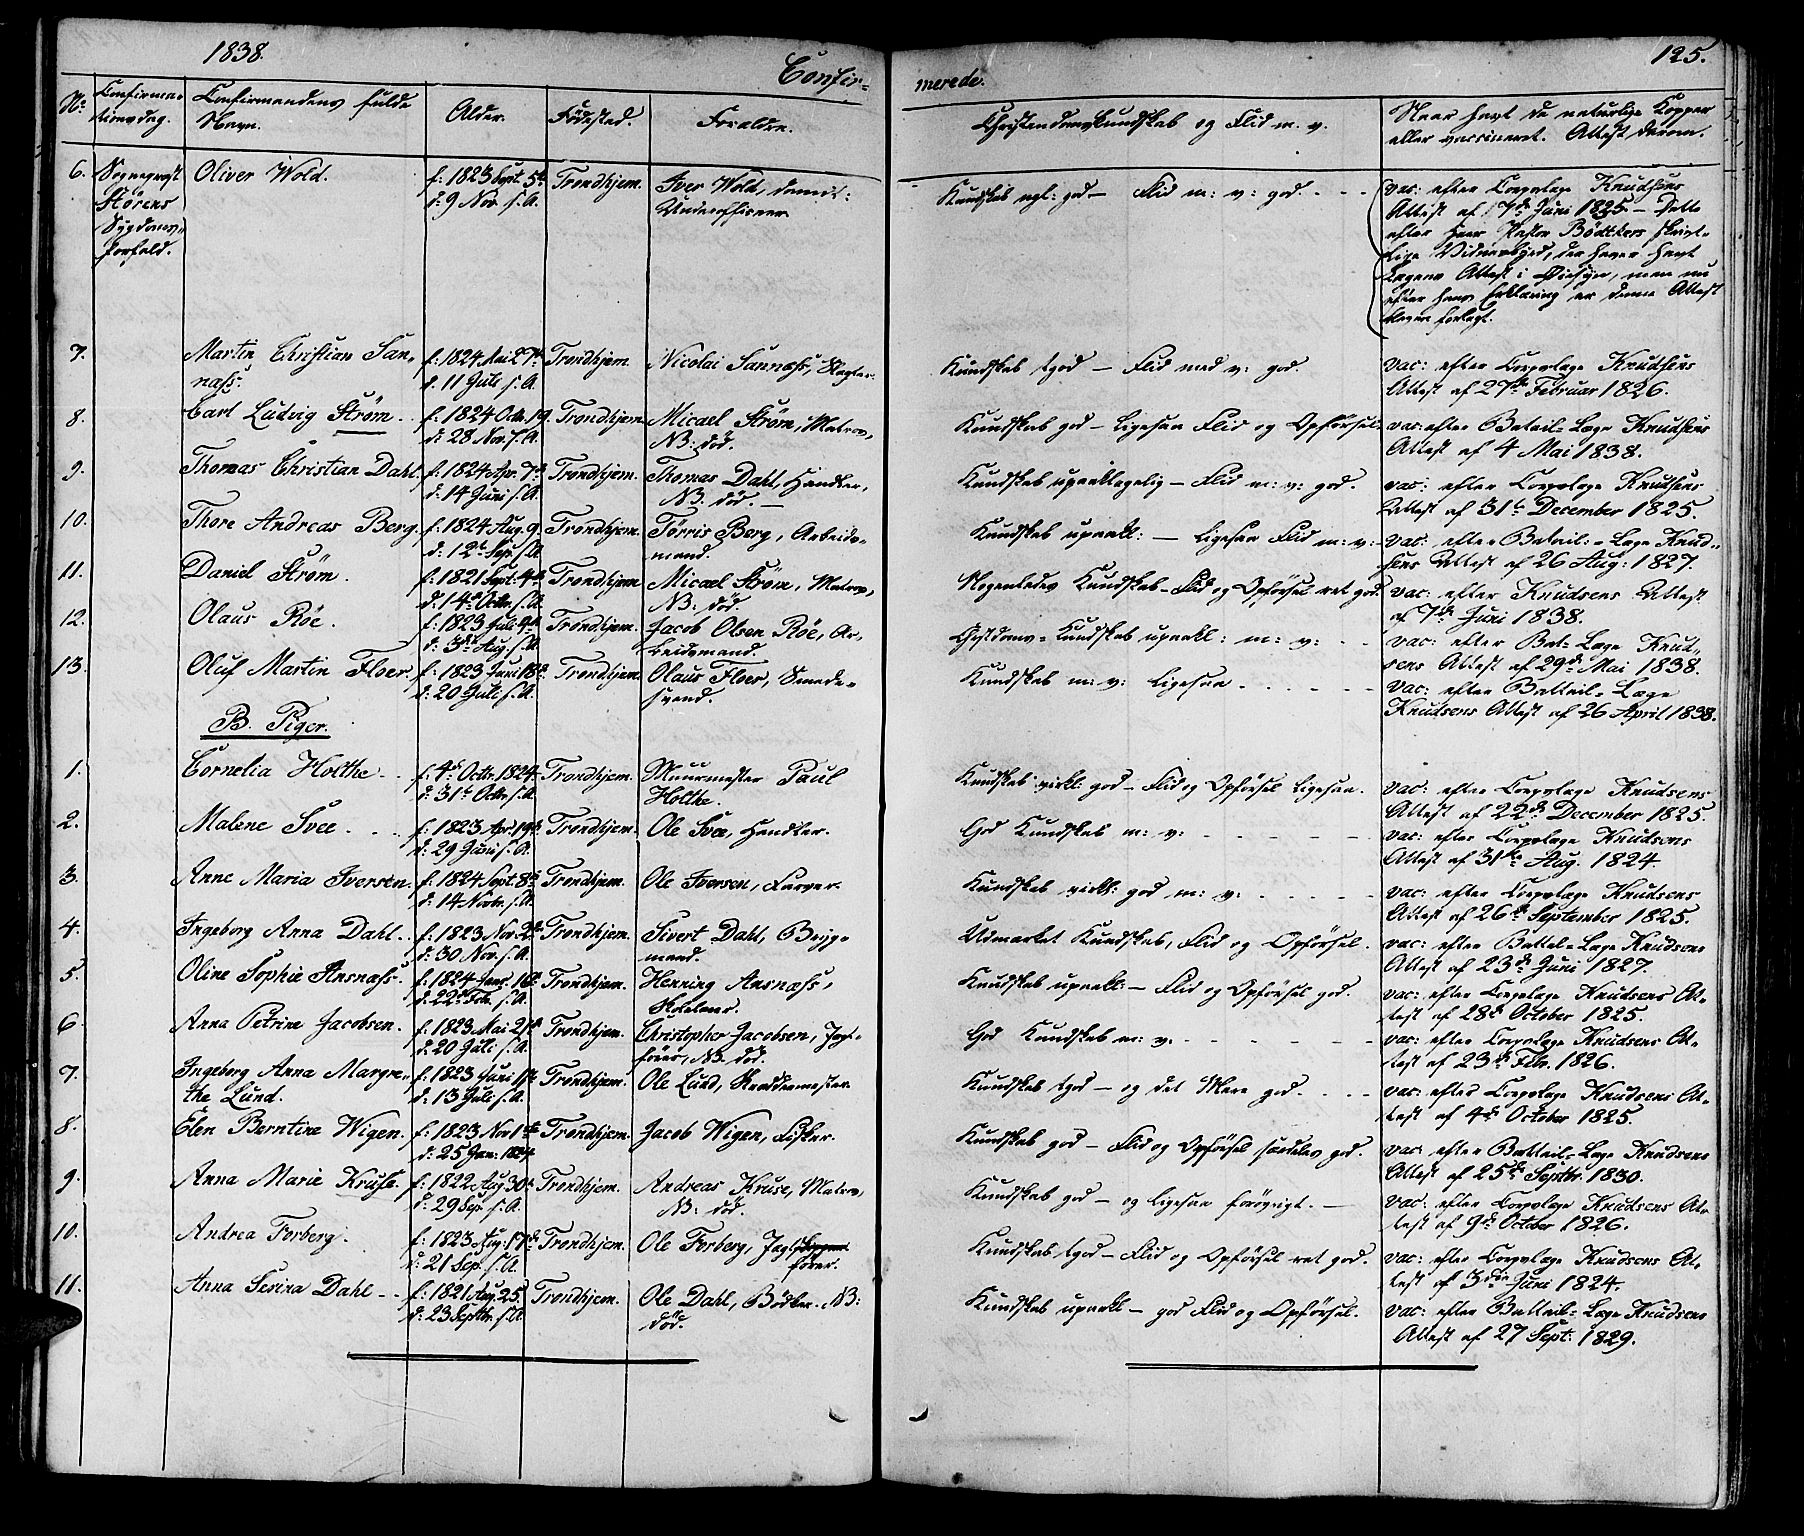 1838.
Confir=
merede.
125.
No
Confirma-
tionsdag.
Confirmandens fulde
Navn.
Alder.
Fødested.
Forældre.
Christendomskundskab og Flid m. v.
Naar havt de naturlige Kopper
eller vaccineret. Attest derom.
6.
Sogneprest
Størens
Sygdoms-
forfald.
Oliver Wold.
f: 1823 Sept. 5te
d: 9 Nov. s. A.
Trondhjem.
Iver Wold,
Underofficeer
Kundskab ngl: god — Flid m: v: god. - - -
vac: efter Corpslæge Knudsens
Attest af 17de Juni 1825 — Dette
efter Herr Pastor Bødtkers skrift-
lige Vidnesbyrd, der haver havt
Lægens Attest i Øiesyn, men nu
efter hans Erklæring er denne Attest
bleven forlagt.
7.
Martin Christian San-
næss.
f: 1824 Mai 27de
d. 11 Juli s. A.
Trondhjem.
Nicolai Sannæss, Slagter.
Kundskab tgod — Flid med v: god.
vac: efter Corpslæge Knudsens
Attest af 27de Februar 1826.
8.
Carl Ludvig Strøm.
f: 1824 Octr. 19.
d: 28 Nov. s. A.
Trondhjem
Micael Strøm, Matros,
NB: død.
Kundskab god — ligesaa Flid og Opførsel.
vac: efter Batail- Læge Knudsens
Attest af 4 Mai 1838.
9.
Thomas Christian Dahl.
f: 1824 Apr. 7de
d: 14 Juni s. A.
Trondhjem.
Thomas Dahl, Handler,
NB. død. —
Kundskab upaaklagelig — Flid m: v: god.
vac: efter Corpslæge Knudsens
Attest af 31te December 1825
10.
Thore Andreas Berg.
f: 1824 Aug. 9.
d: 12te Sep. s. A.
Trondhjem.
Tørris Berg, Arbeids-
mand.
Kundskab upaakl: — ligesaa Flid m: v:
vac: efter Batail: - Læge Knud-
sens Attest af 26 Aug: 1827.
11.
Daniel Strøm.
f: 1821 Sept: 4de
d: 14de Octr. s. A.
Trondhjem
Micael Strøm, Matros,
NB: død.
Nogenledes Kundskab — Flid og Opførsel ret god.
vac: efter Knudsens Attest
af 7de Juni 1838.
12.
Olaus Röe.
f: 1823 Juli 4de
d: 3die Aug. s. A.
Trondhjem.
Jacob Olsen Röe, Ar-
beidsmand.
Chrstdoms- Kundskab upaakl: m: v: -
vac: efter Bat- Læge Knud-
sens Attest af 29de Mai 1838.
13.
Oluf Martin Floer.
f: 1823 Juni 18de
d: 20 Juli s. A.
Trondhjem.
Olaus Floer, Smede-
svend.
Kundskab m: v: ligesaa - - - - -
vac: efter Battail= Læge
Knudsens Attest af 26 April 1838.
B. Piger.
1.
Cornelia Holthe - -
f: 4de Octr. 1824
d: 31te Octr. s. A.
Trondhjem.
Muurmester Paul
Holthe.
Kundskab virkl: god — Flid og Opførsel ligesaa.
vac: efter Corpslæge Knudsens
Attest af 22de December 1825.
2.
Malene Svee - - -
f: 1823 Apr. 19de
d: 29 Juni s. A.
Trondhjem.
Ole Svee, Handler.
God Kundskab m: v: - - - - -
vac: efter Corpslæge Knudsens
Attest af 31te Aug. 1824.
3.
Anne Maria Iversen.
f: 1824 Sept. 8de
d: 14 Novbr. s. A.
Trondhjem.
Ole Iversen, Farver.
Kundskab virkl: god m: v: - - - - -
vac: efter Corpslæge Knudsens
Attest af 26de September 1825.
4.
Ingeborg Anna Dahl.
f: 1823 Nov. 2de
d: 30 Nov. s. A.
Trondhjem.
Sivert Dahl, Bryg-
mand.
Udmærket Kundskab, Flid og Opførsel.
vac: efter Battal= Læge Knudsens
Attest af 23de Juni 1827.
5.
Oline Sophie Ansnæss.
f: 1824 Janr. 16de
d: 22de Feb. s. A.
Trondhjem.
Henning Ansnæss,
Kundskab upaakl: — Flid og Opførsel god.
vac: efter Corpslæge Knudsens At-
test af 28de October 1825.
6.
Anna Petrine Jacobsen.
f: 1823 Mai 21de
d. 20 Juli s. A.
Trondhjem.
Christopher Jacobsen, Jagt-
fører, NB. død.
God Kundskab m: v: - - - - -
vac: efter Corpslæge Knudsens At-
test af 23de Feb. 1826.
7.
Ingeborg Anna Margre-
the Lund.
f: 1823 Juni 1ste
d: 13 Juli s. A.
Trondhjem.
Ole Lund,
Kundskab tgod — og det Mere god. - - -
vac: efter Corpslæge Knudsens At-
test af 4de October 1825.
8.
Elen Berntine Wigen.
f: 1823 Nov 1ste
d: 25 Jan: 1824
Trondhjem.
Jacob Wigen, Fisker.
Kundskab god — Flid og Opførsel særdeles god.
vac: efter Battail= Læge Knudsens
Attest af 25de Septbr. 1830.
9.
Anna Marie Kruse.
f: 1822 Aug 30te
d: 29 Sep. s. A.
Trondhjem.
Andreas Kruse, Matros,
NB: død.
Kundskab god — og ligesaa forøvrigt. —
vac: efter Corpslæge Knudsens At-
test af 9de October 1826.
10.
Andrea Forberg.
f: 1823 Aug. 17de
d: 21 Sep. s. A.
Trondhjem.
Ole Forberg, Jagt
fører.
Kundskab tgod — Flid og Opførsel ret god.
vac: efter Corpslæge Knudsens At-
test af 3die Juni 1824.
11.
Anna Serina Dahl - -
f: 1821 Aug. 25.
d: 23 Septbr. s. A.
Trondhjem.
Ole Dahl, Bødker. NB:
død.
Kundskab upaakl — god Flid og Opførsel.
vac: efter Battail= Læge Knudsens
Attest af 27 Sept: 1829.